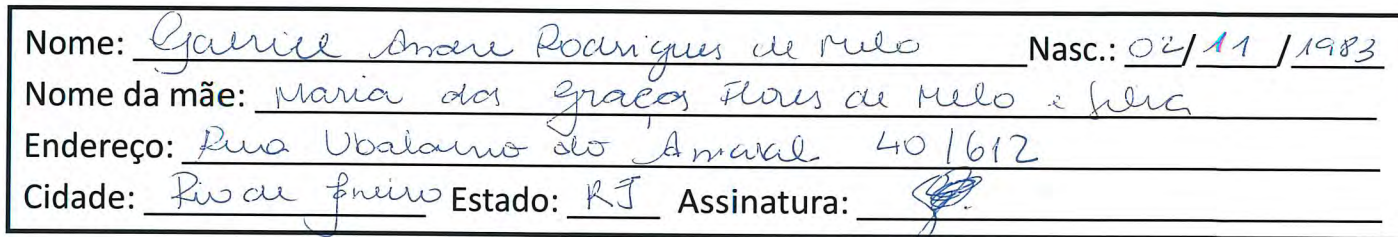 Nome: Gabriel Andre Rodrigues de Melo Nasc.: 02/11/1983
Nome da mãe: Maria das Graças Flores de Melo e Silva
Endereço: Rua Ubaldino do Amaral 40/612
Cidade: Rio de Janeiro Estado: RJ Assinatura: